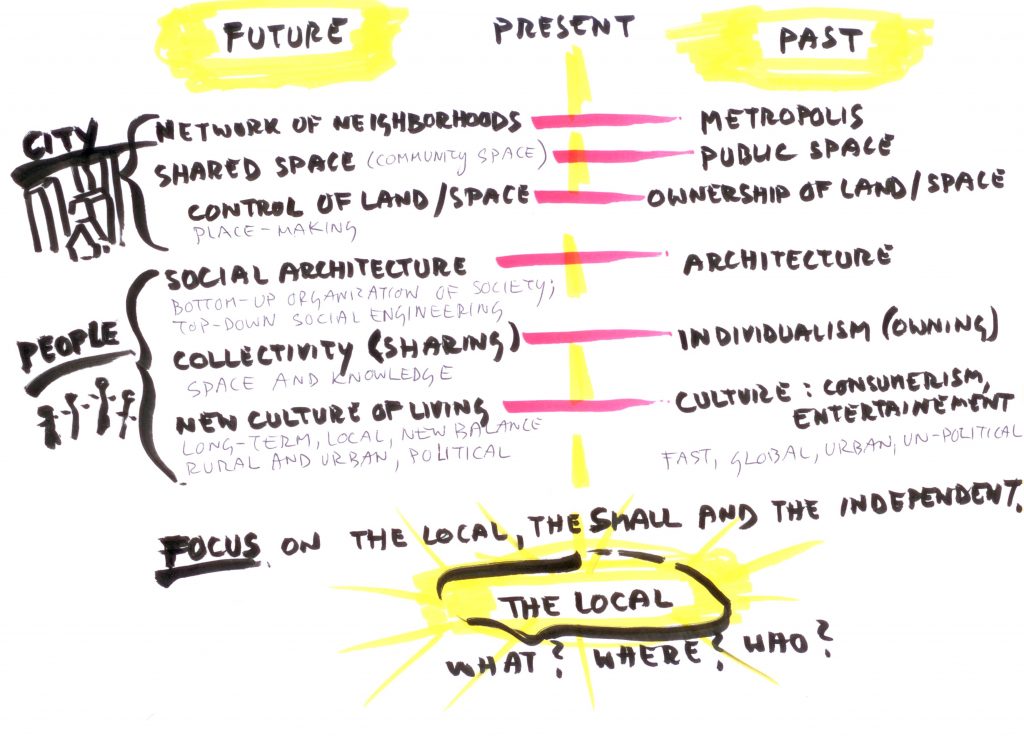 FUTURE PRESENT PAST
CITY
NETWORK OF NEIGHBORHOODS METROPOLIS
SHARED SPACE (COMMUNITY SPACE) PUBLIC SPACE
CONTROL OF LAND/SPACE OWNERSHIP OF LAND/SPACE
PLACE-MAKING
SOCIAL ARCHITECTURE ARCHITECTURE
BOTTOM-UP ORGANIZATION OF SOCIETY;
TOP-DOWN SOCIAL ENGINEERING
PEOPLE
COLLECTIVITY (SHARING) INDIVIDUALISM (OWNING)
SPACE AND KNOWLEDGE
NEW CULTURE OF LIVING CULTURE: CONSUMERISM,
ENTERTAINEMENT
LONG-TERM, LOCAL, NEW BALANCE
RURAL AND URBAN, POLITICAL FAST, GLOBAL, URBAN, UN-POLITICAL
FOCUS ON THE LOCAL, THE SMALL AND THE INDEPENDENT.
THE LOCAL
WHAT? WHERE? WHO?